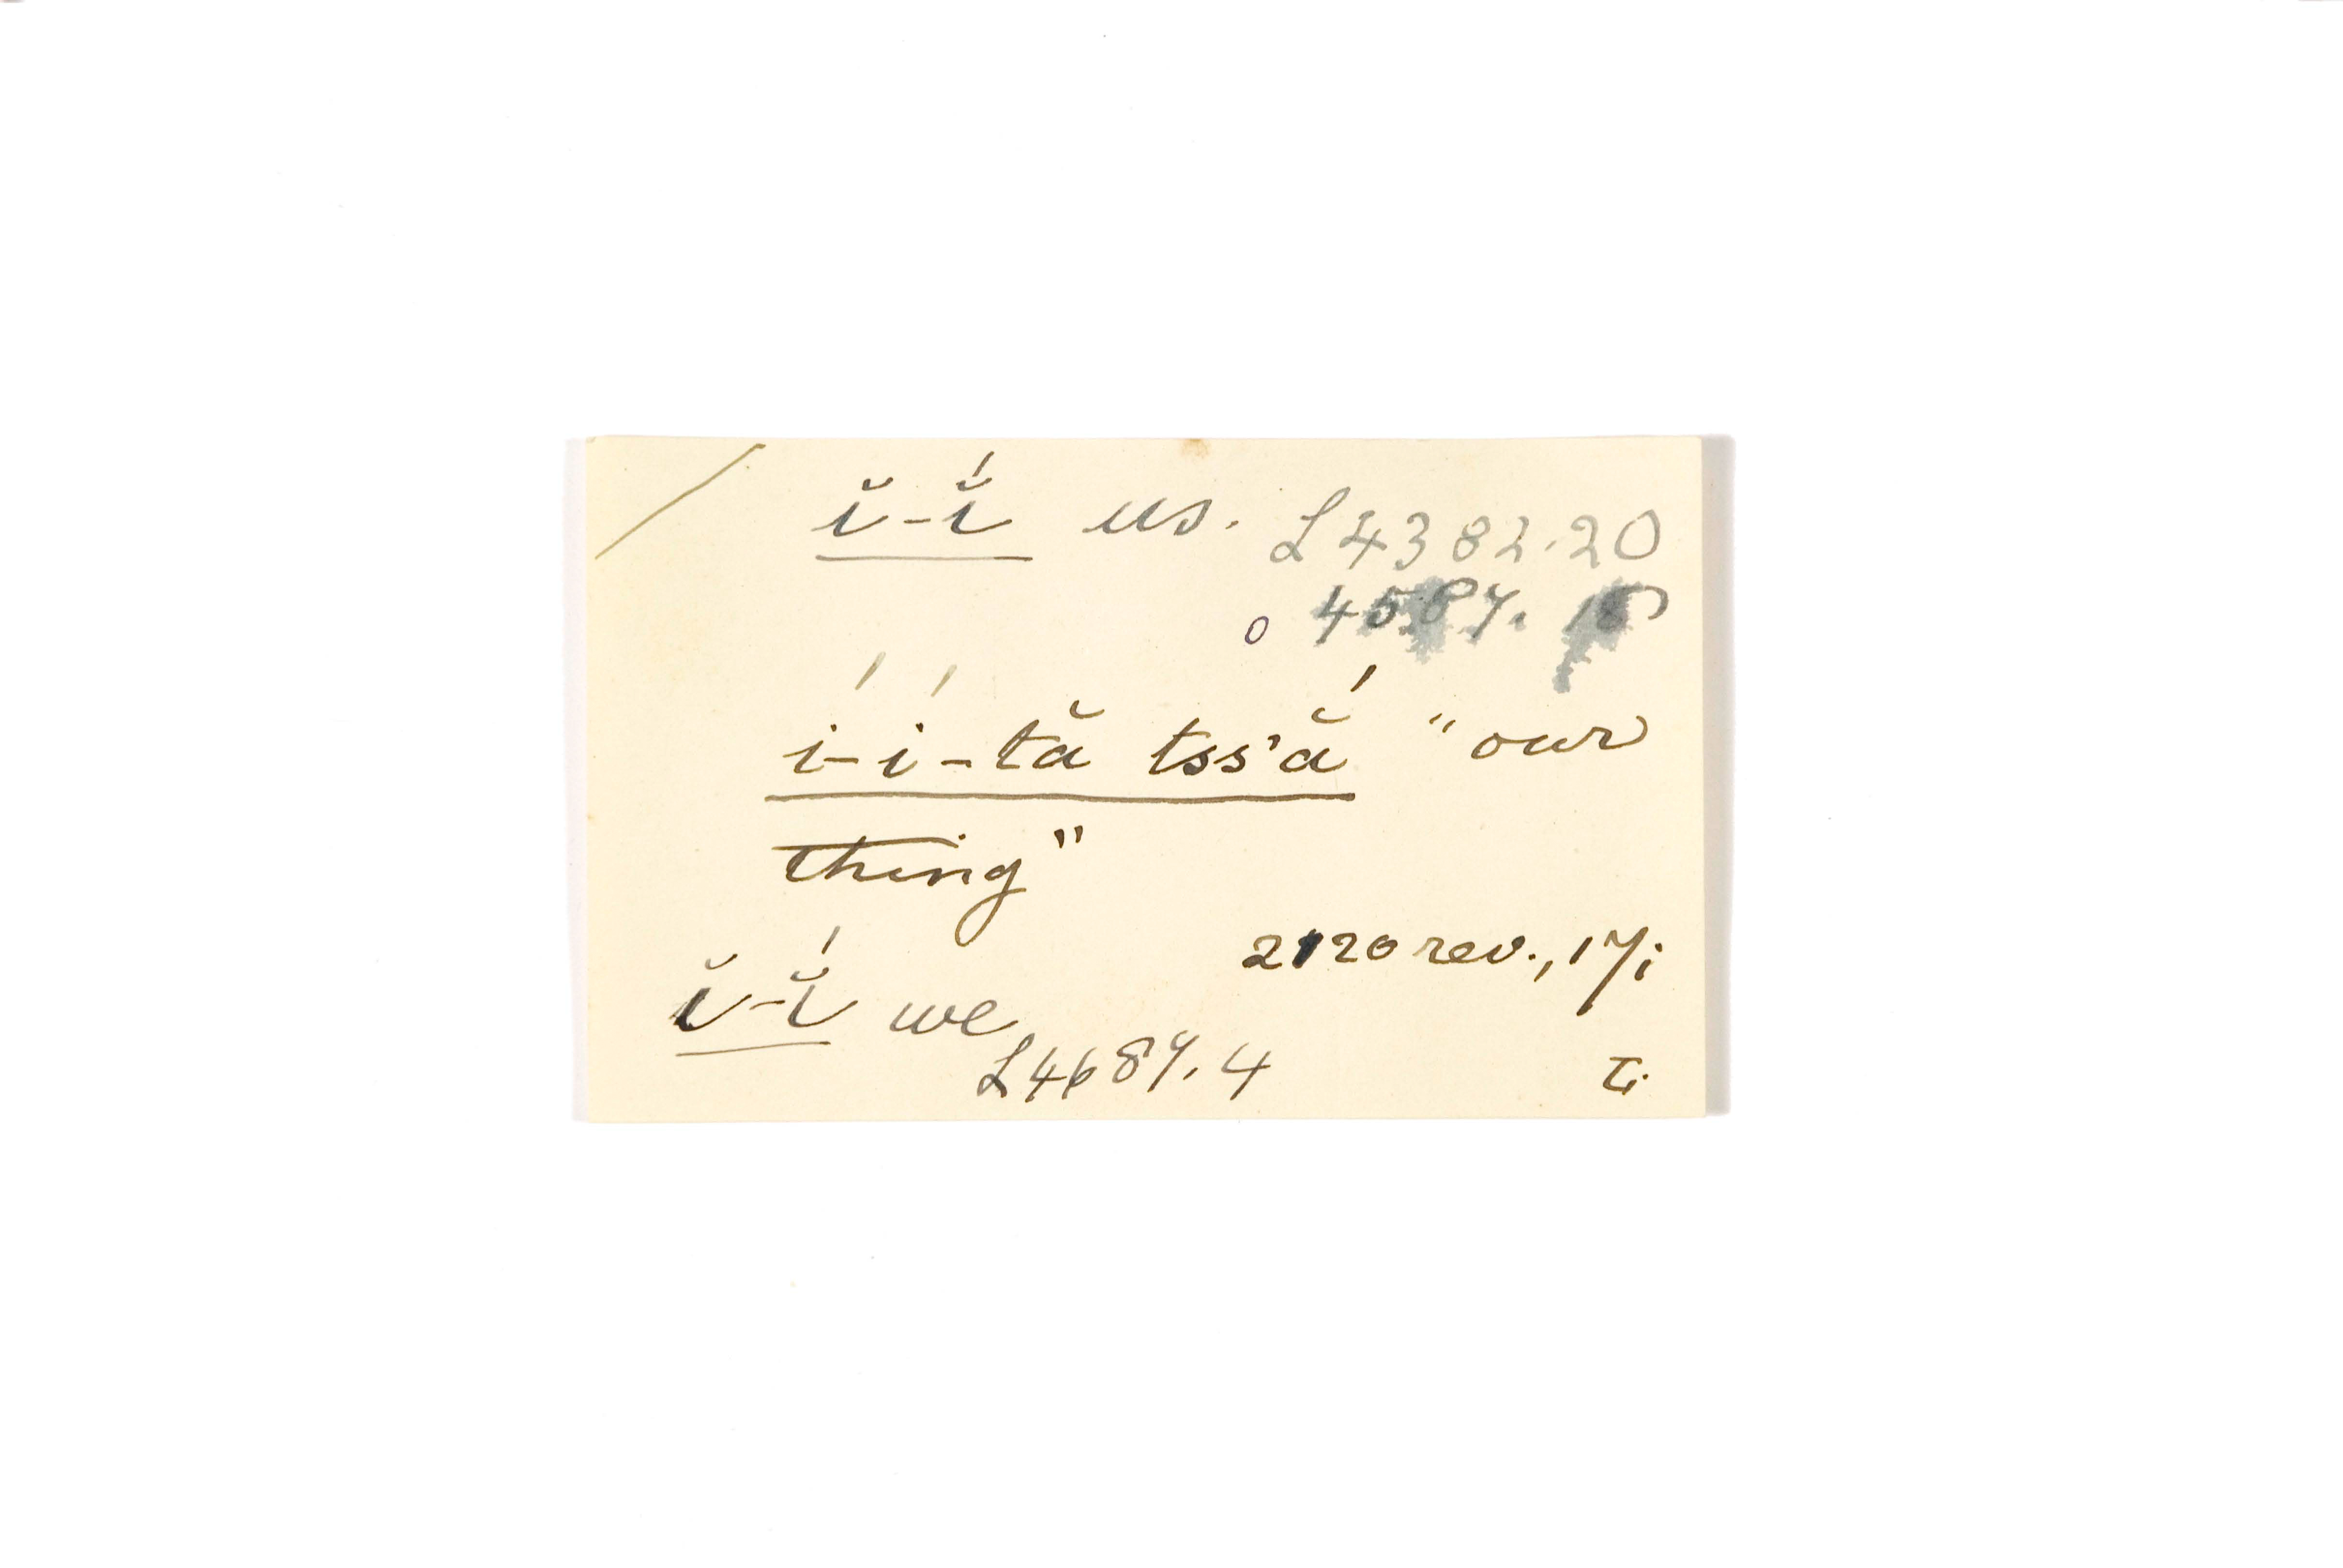 ĭ-ĭ́ us. L 4382.20
o 4587. 18
í-í-tă tss'ắ "our
thing"
2120 rev., 17;
ĭ-ĭ́ we
L4687.4